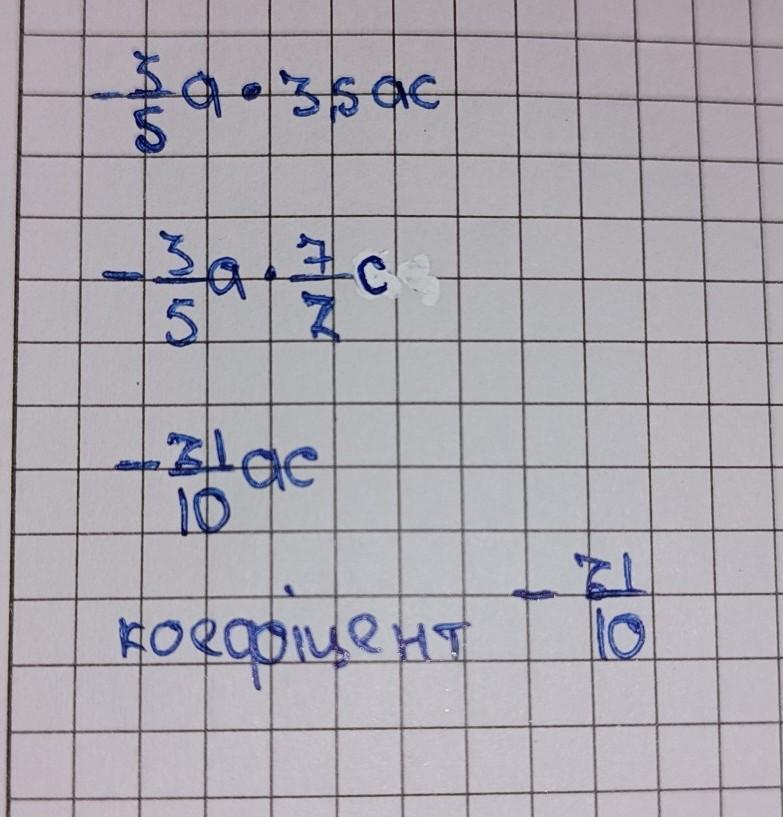 -3/5 a · 3,5 ac
-3/5 a · 7/2 c
-21/10 ac
коефіцієнт -21/10